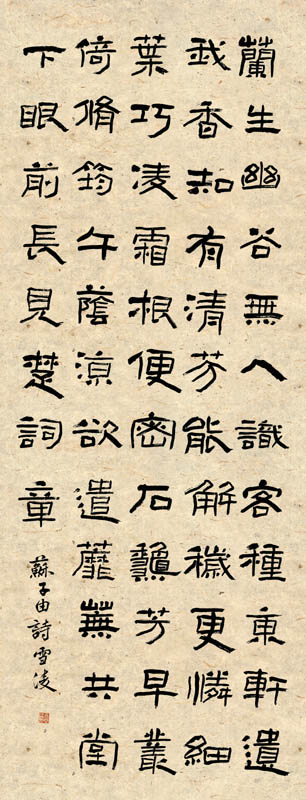 蘭生幽谷無人識客種東軒遺
我香知有清芬能解穢更憐細
葉巧凌霜根便密石龝芳早叢
倚脩筠午蔭涼欲遣蘼蕪共堂
下眼前長見楚詞章
蘇子由詩雪凌